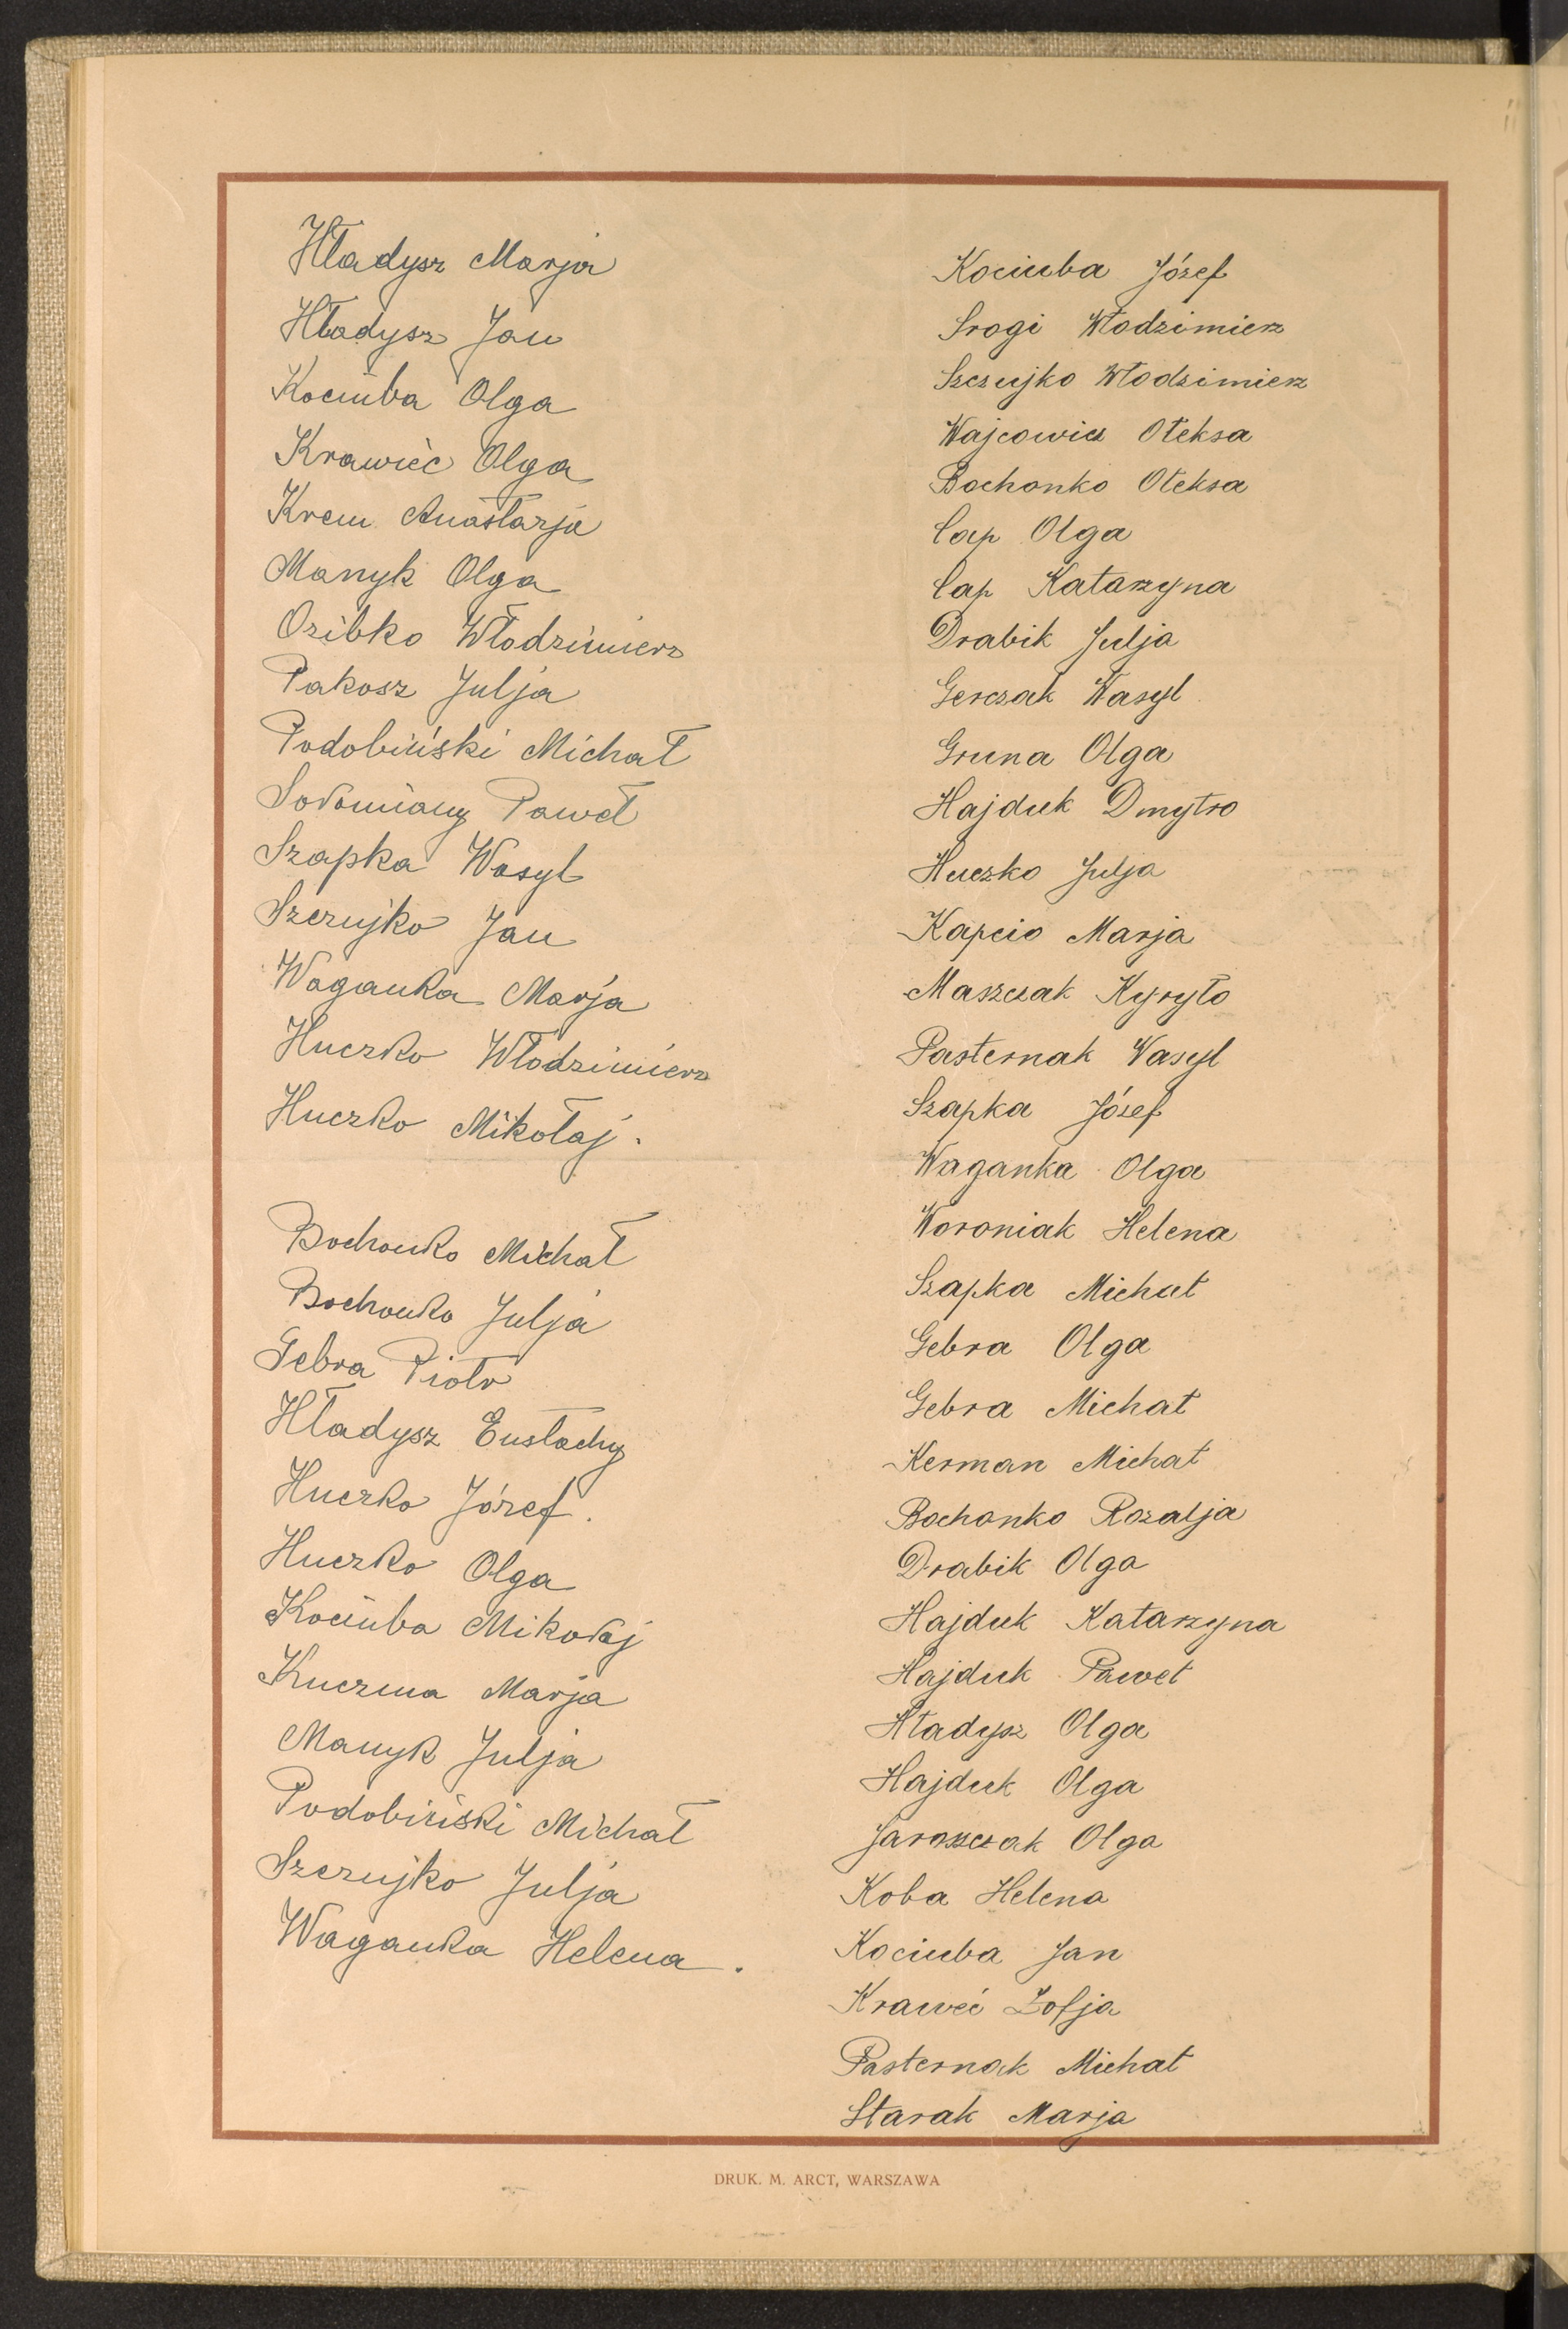 Hładysz Marja
Hładysz Jan
Kociuba Olga
Krawieć Olga
Krem Anastazja
Manyk Olga
Ozibko Włodzimierz
Pakosz Julja
Podobiński Michał
Sołomiany Paweł
Szapka Wasyl
Szczujko Jan
Waganka Marja
Huczko Włodzimierz
Huczko Mikołaj.
Bochonko Michał
Bochonko Julja
Gebra Piotr
Hładysz Eustachy
Huczko Józef.
Huczko Olga
Kociuba Mikołaj
Kuczma Marja
Manyk Julja
Podobiński Michał
Szczujko Julja
Waganka Helena.
Kociuba Józef
Srogi Włodzimierz
Szczujko Włodzimierz
Wajcowicz Ołeksa
Bochonko Ołeksa
Cap Olga
Cap Katarzyna
Drabik Julja
Gerczak Wasyl
Gruna Olga
Hajduk Dmytro
Huczko Julja
Kapcio Marja
Maszczak Kyryło
Pasternak Wasyl
Szapka Józef
Waganka Olga
Woroniak Helena
Szapka Michał
Gebra Olga
Gebra Michał
Kerman Michał
Bochonko Rozalja
Drabik Olga
Hajduk Katarzyna
Hajduk Paweł
Hładysz Olga
Hajduk Olga
Jaroszczak Olga
Koba Helena
Kociuba Jan
Kraweć Zofja
Pasternak Michał
Starak Marja
DRUK. M. ARCT, WARSZAWA